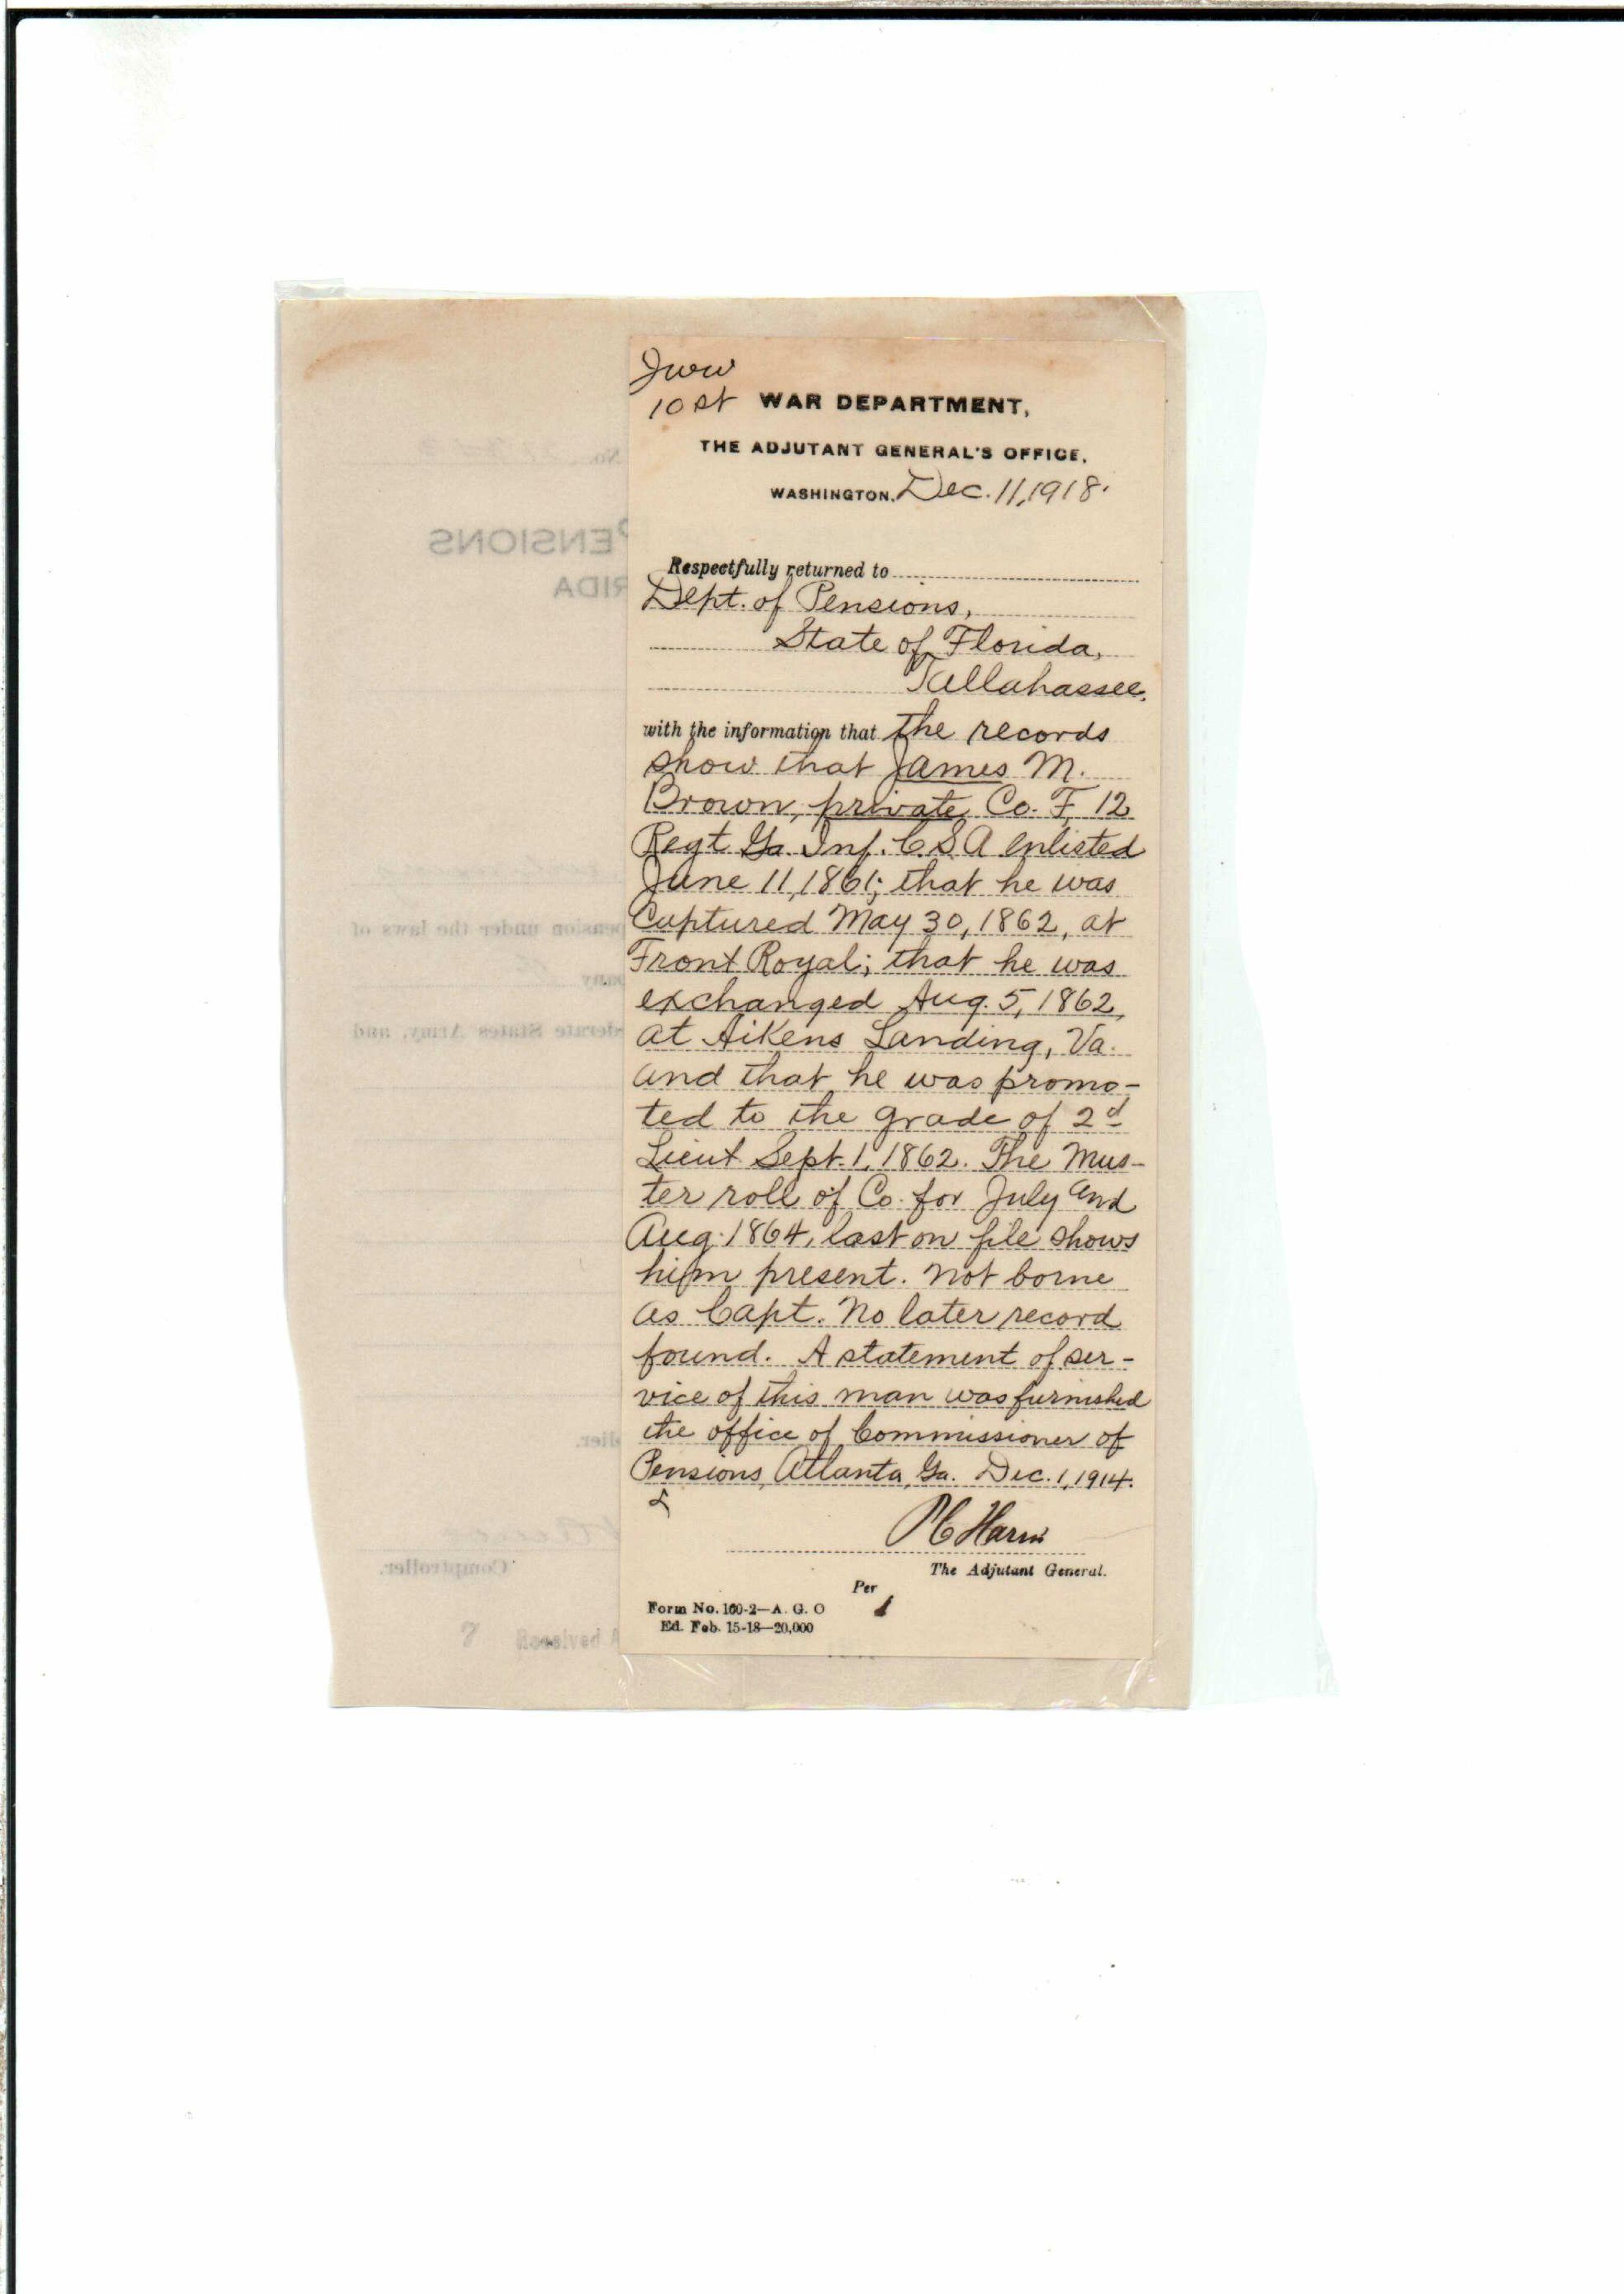 Jww
10 st WAR DEPARTMENT,
THE ADJUTANT GENERAL'S OFFICE,
WASHINGTON, Dec. 11, 1918.
Respectfully returned to
Dept. of Pensions,
State of Florida,
Tallahassee.
with the information that the records
show that James M.
Brown, private Co. F, 12
Regt Ga. Inf. C.S.A enlisted
June 11, 1861; that he was
Captured May 30, 1862, at
Front Royal; that he was
exchanged Aug. 5, 1862,
at Aikens Landing, Va.
and that he was promo-
ted to the grade of 2d
Lieut Sept. 1, 1862. The Mus-
ter roll of Co. for July and
Aug. 1864, last on file shows
him present. Not borne
as Capt. No later record
found. A statement of ser-
vice of this man was furnished
the office of Commissioner of
Pensions, Atlanta, Ga. Dec. 1, 1914.
P C Harris
The Adjutant General.
Per
Form No. 160-2—A. G. O
Ed. Feb. 15-18—20,000
No.
PENSIONS
RIDA
pension under the laws of
pany
derate States Army, and
Comptroller.
Received A